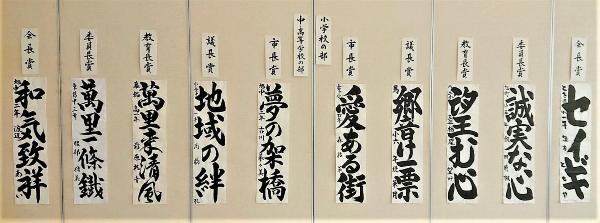 会長賞
セイギ
委員長賞
誠実な心
教育長賞
望む心
議長賞
響け一票
市長賞
愛ある街
小学校の部
中・高等学校の部
市長賞
夢の架橋
議長賞
地域の絆
教育長賞
萬里来清風
委員長賞
萬里一條鐵
会長賞
和気致祥